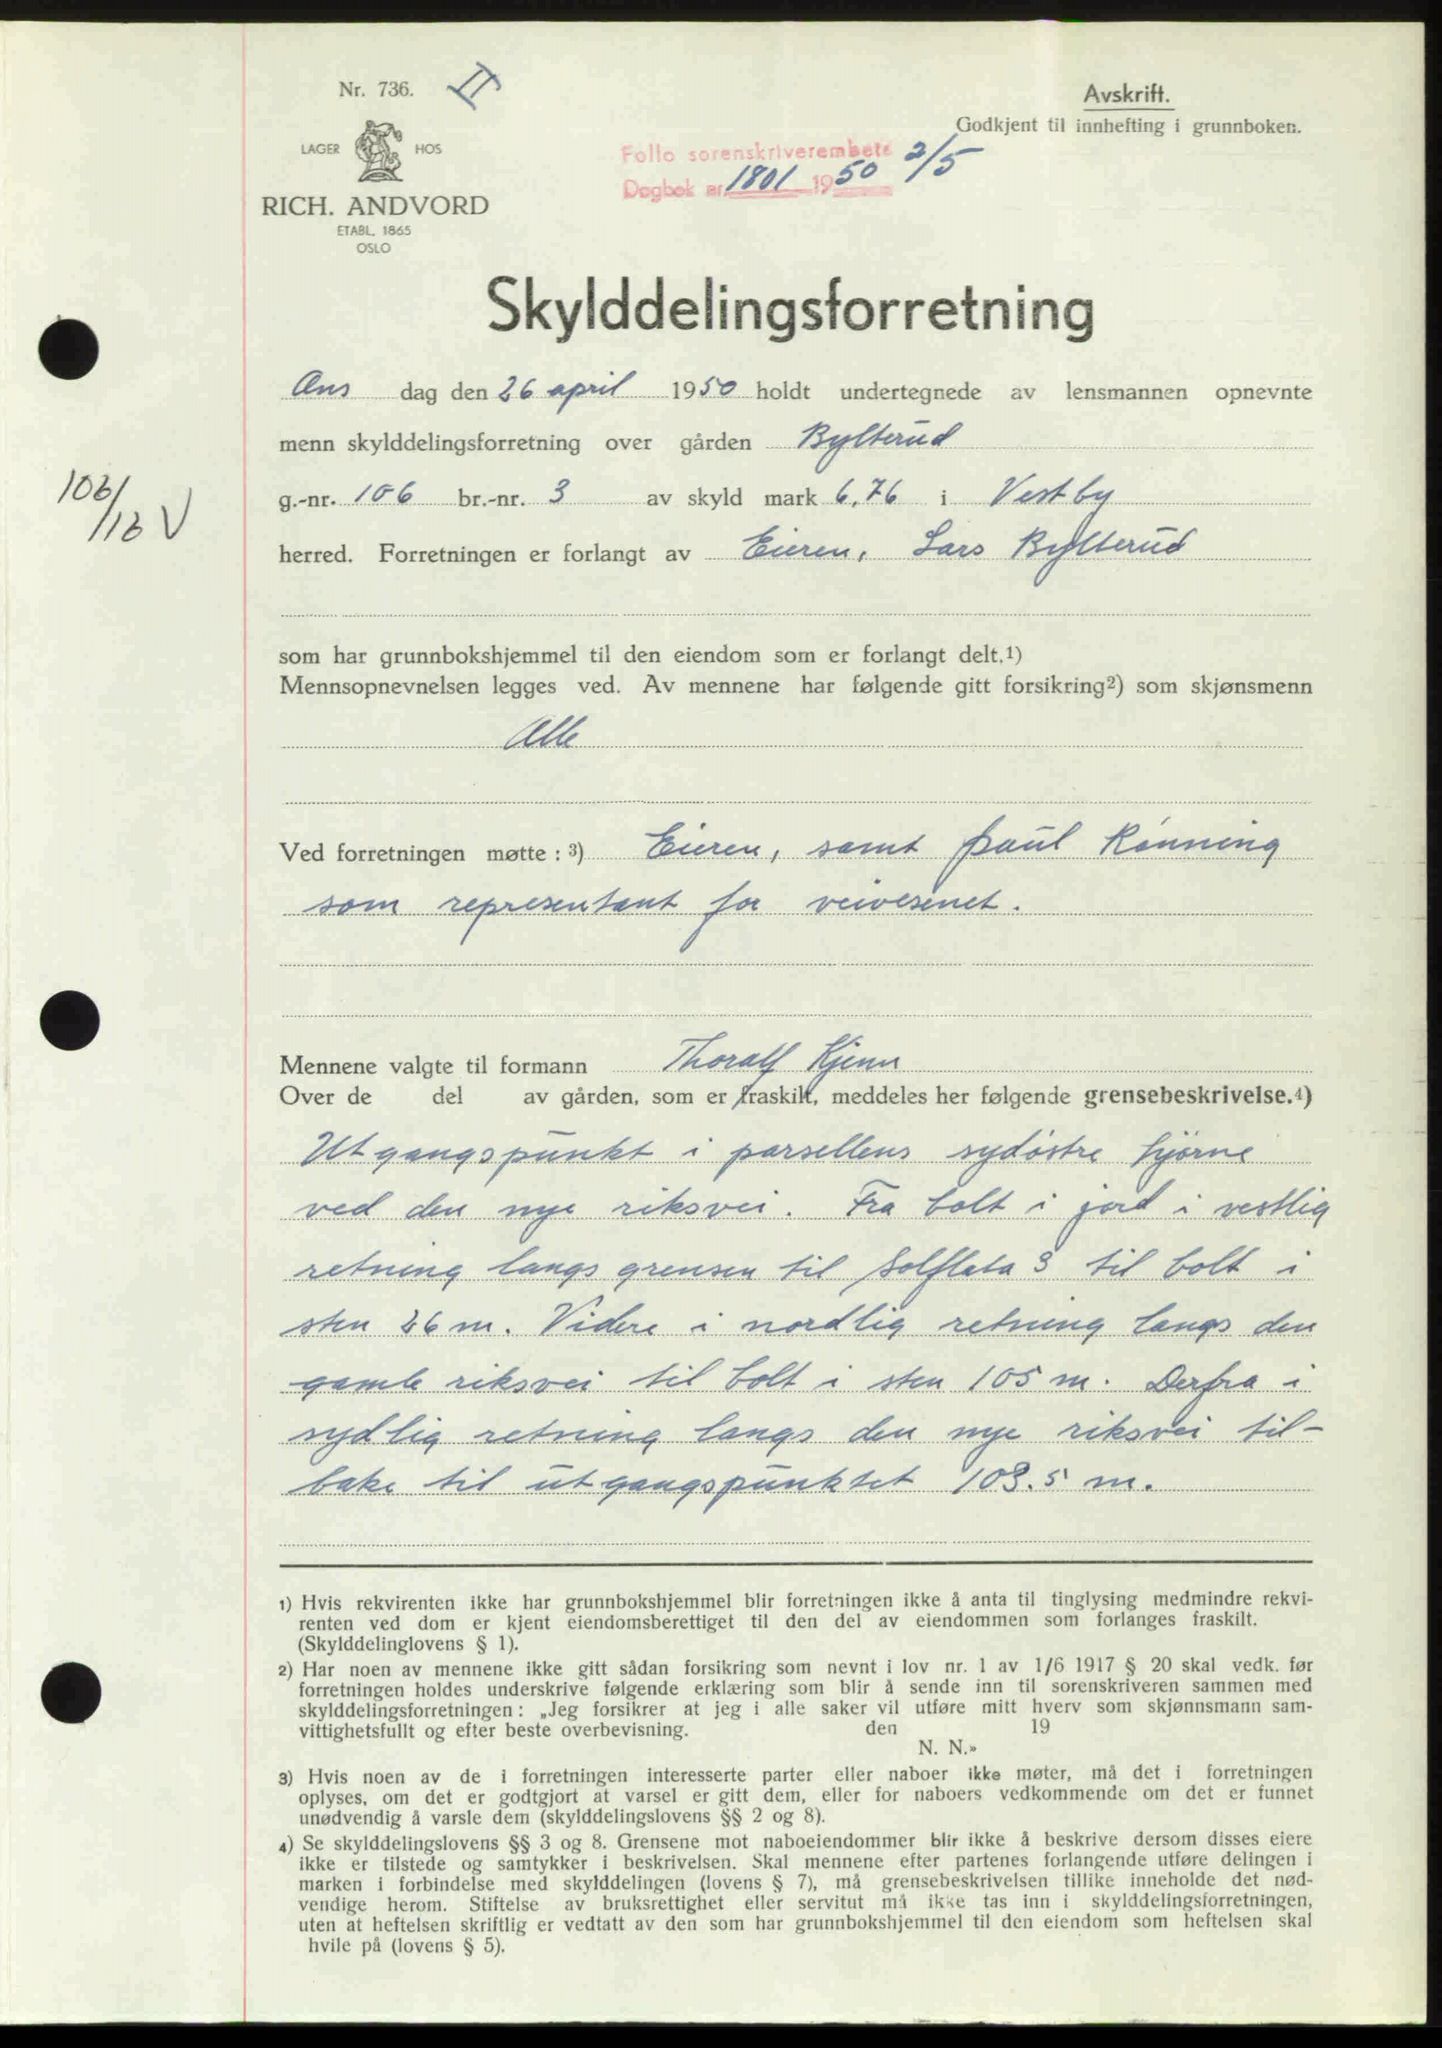 Nr. 736.
II
Avskrift.
Godkjent til innhefting i grunnboken.
LAGER HOS
RICH. ANDVORD
ETABL. 1865
OSLO
Follo sorenskriverembete
Dagbok nr. 1801 1950 2/5
Skylddelingsforretning
Ons dag den 26 april 1950 holdt undertegnede av lensmannen opnevnte
menn skylddelingsforretning over gården Bylterud
106/16 V
g.-nr. 106 br.-nr. 3 av skyld mark 6,76 i Vestby
herred. Forretningen er forlangt av Eieren, Lars Bylterud
som har grunnbokshjemmel til den eiendom som er forlangt delt.1)
Mennsopnevnelsen legges ved. Av mennene har følgende gitt forsikring2) som skjønsmenn
Alle
Ved forretningen møtte: 3) Eieren, samt Paul Rønning
som representant for veivesenet.
Mennene valgte til formann Thoralf Kjenn
Over de del av gården, som er fraskilt, meddeles her følgende grensebeskrivelse.4)
Utgangspunkt i parsellens sydøstre hjørne
ved den nye riksvei. Fra bolt i jord i vestlig
retning langs grensen til Solflata 3 til bolt i
sten 26 m. Videre i nordlig retning langs den
gamle riksvei til bolt i sten 105 m. Derfra i
sydlig retning langs den nye riksvei til-
bake til utgangspunktet 103.5 m.
1) Hvis rekvirenten ikke har grunnbokshjemmel blir forretningen ikke å anta til tinglysing medmindre rekvi-
renten ved dom er kjent eiendomsberettiget til den del av eiendommen som forlanges fraskilt.
(Skylddelinglovens § 1).
2) Har noen av mennene ikke gitt sådan forsikring som nevnt i lov nr. 1 av 1/6 1917 § 20 skal vedk. før
forretningen holdes underskrive følgende erklæring som blir å sende inn til sorenskriveren sammen med
skylddelingsforretningen: „Jeg forsikrer at jeg i alle saker vil utføre mitt hverv som skjønnsmann sam-
vittighetsfullt og efter beste overbevisning. den 19
N. N.»
3) Hvis noen av de i forretningen interesserte parter eller naboer ikke møter, må det i forretningen
oplyses, om det er godtgjort at varsel er gitt dem, eller for naboers vedkommende om det er funnet
unødvendig å varsle dem (skylddelingslovens §§ 2 og 8).
4) Se skylddelingslovens §§ 3 og 8. Grensene mot naboeiendommer blir ikke å beskrive dersom disses eiere
ikke er tilstede og samtykker i beskrivelsen. Skal mennene efter partenes forlangende utføre delingen i
marken i forbindelse med skylddelingen (lovens § 7), må grensebeskrivelsen tillike inneholde det nød-
vendige herom. Stiftelse av bruksrettighet eller servitut må ikke tas inn i skylddelingsforretningen,
uten at heftelsen skriftlig er vedtatt av den som har grunnbokshjemmel til den eiendom som heftelsen skal
hvile på (lovens § 5).